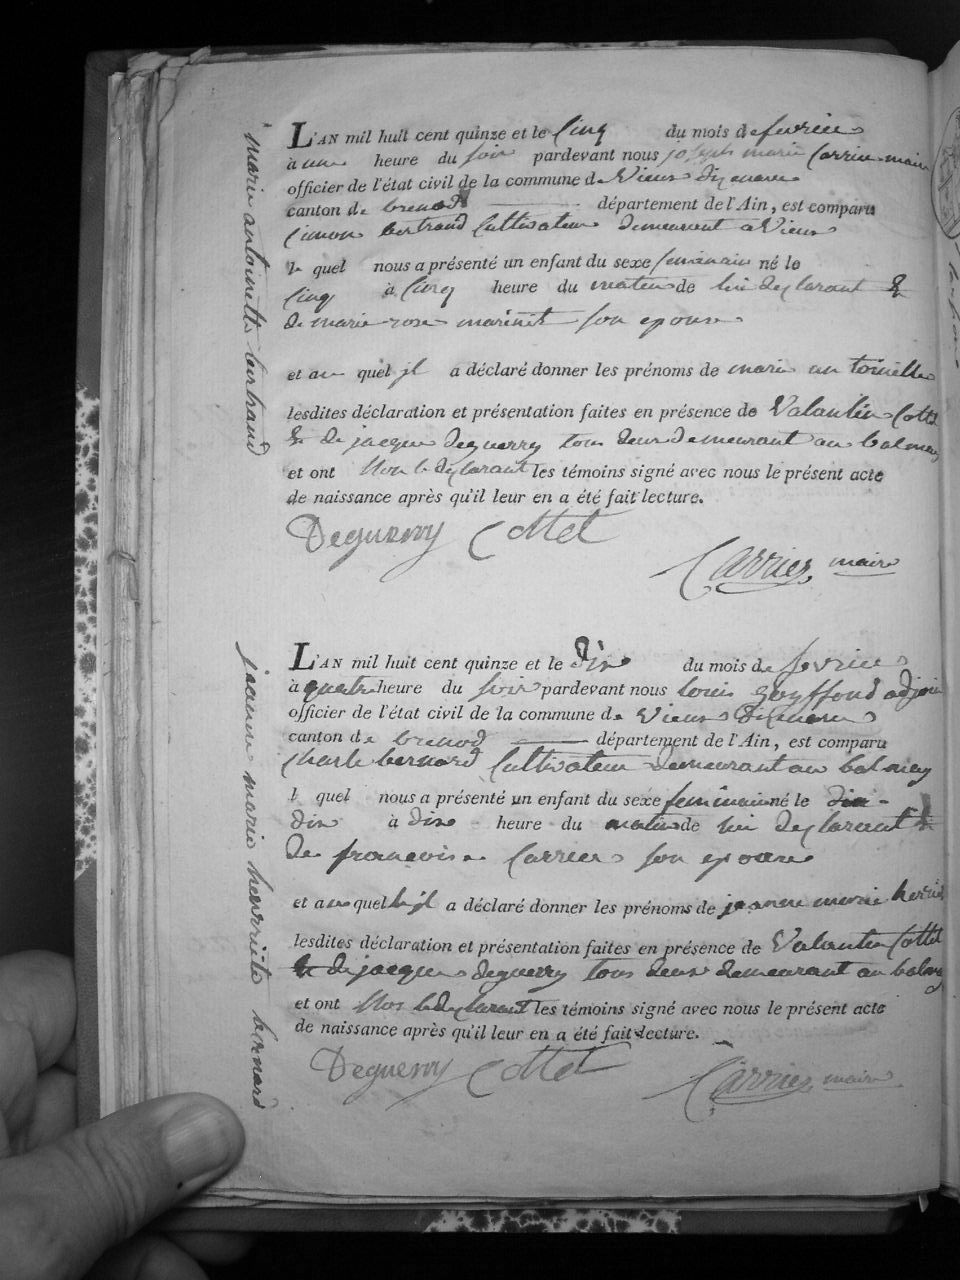 marie antoinette bertrand
L'AN mil huit cent quinze et le Cinq du mois de fevrier
à une heure du soir pardevant nous joseph marie Carrier maire
officier de l'état civil de la commune de Vieux dizenave
canton de brenod département de l'Ain, est comparu
Simon bertrand Cultivateur demeurant a Vieux
le quel nous a présenté un enfant du sexe feminain né le
Cinq à Cinq heure du maten de lui declarant &
de marie rose marinet son epouse
et au quel jl a déclaré donner les prénoms de marie an toinette
lesdites déclaration et présentation faites en présence de Valantin Cottet
& de jacque deguerry tous deux demeurant au balmey
et ont Non le declarant les témoins signé avec nous le présent acte
de naissance après qu'il leur en a été fait lecture.
Deguerry Cottet
Carrier maire
jeanne marie henriete bernard
L'AN mil huit cent quinze et le Dix du mois de fevrier
à quatre heure du soir pardevant nous louis adjoin
officier de l'état civil de la commune de Vieux dizenave
canton de brenod département de l'Ain, est comparu
charle bernard Cultivateur demeurant au balmey
le quel nous a présenté un enfant du sexe feminain né le
dix à dix heure du matin de lui declarant &
de francoise Carrier son epouse
et au quel jl a déclaré donner les prénoms de jeanne marie henriet
lesdites déclaration et présentation faites en présence de Valantin Cottet
& de jacque deguerry tous deux demeurant au balmey
et ont Non le declarant les témoins signé avec nous le présent acte
de naissance après qu'il leur en a été fait lecture.
Deguerry Cottet
Carrier maire